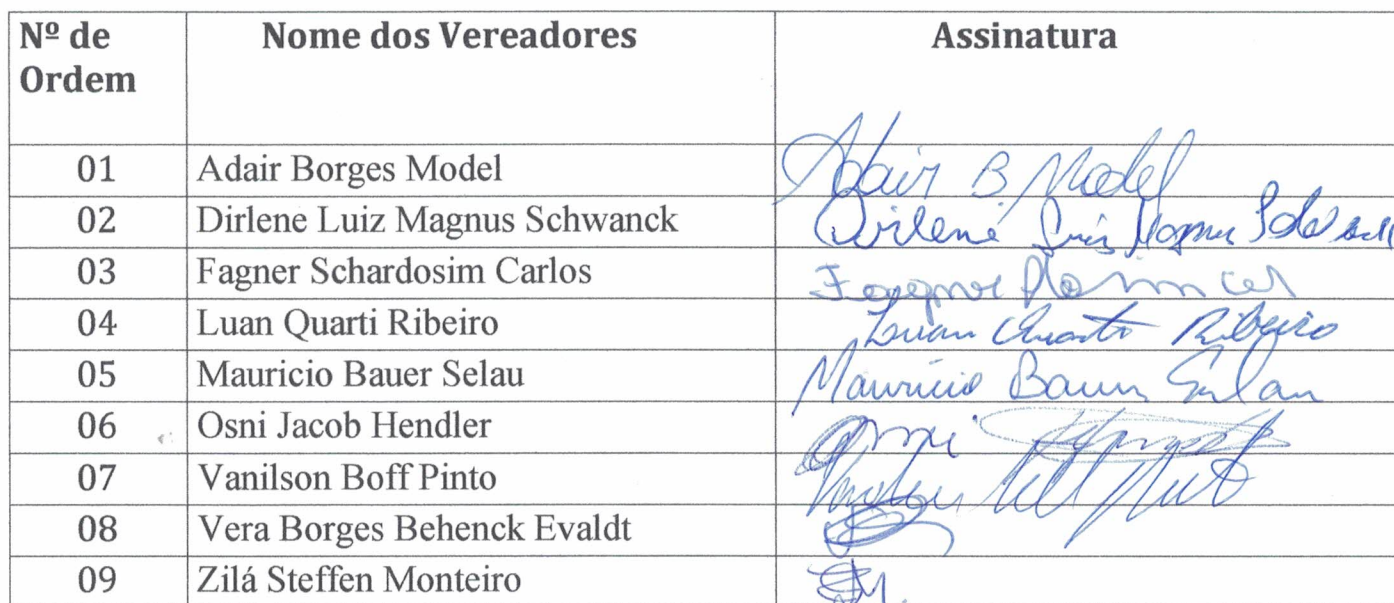 Nº de Ordem Nome dos Vereadores Assinatura
01 Adair Borges Model Adair B Model
02 Dirlene Luiz Magnus Schwanck Dirlene Luiz Magnus
03 Fagner Schardosim Carlos
04 Luan Quarti Ribeiro Luan Quarti Ribeiro
05 Mauricio Bauer Selau Mauricio Bauer Selau
06 Osni Jacob Hendler Osni
07 Vanilson Boff Pinto
08 Vera Borges Behenck Evaldt
09 Zilá Steffen Monteiro